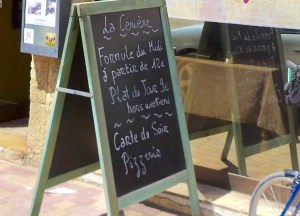 La Cenière
Formule du Midi
à partir de 12€
Plat du Jour 9€
hors weekend
Carte du Soir
Pizzeria